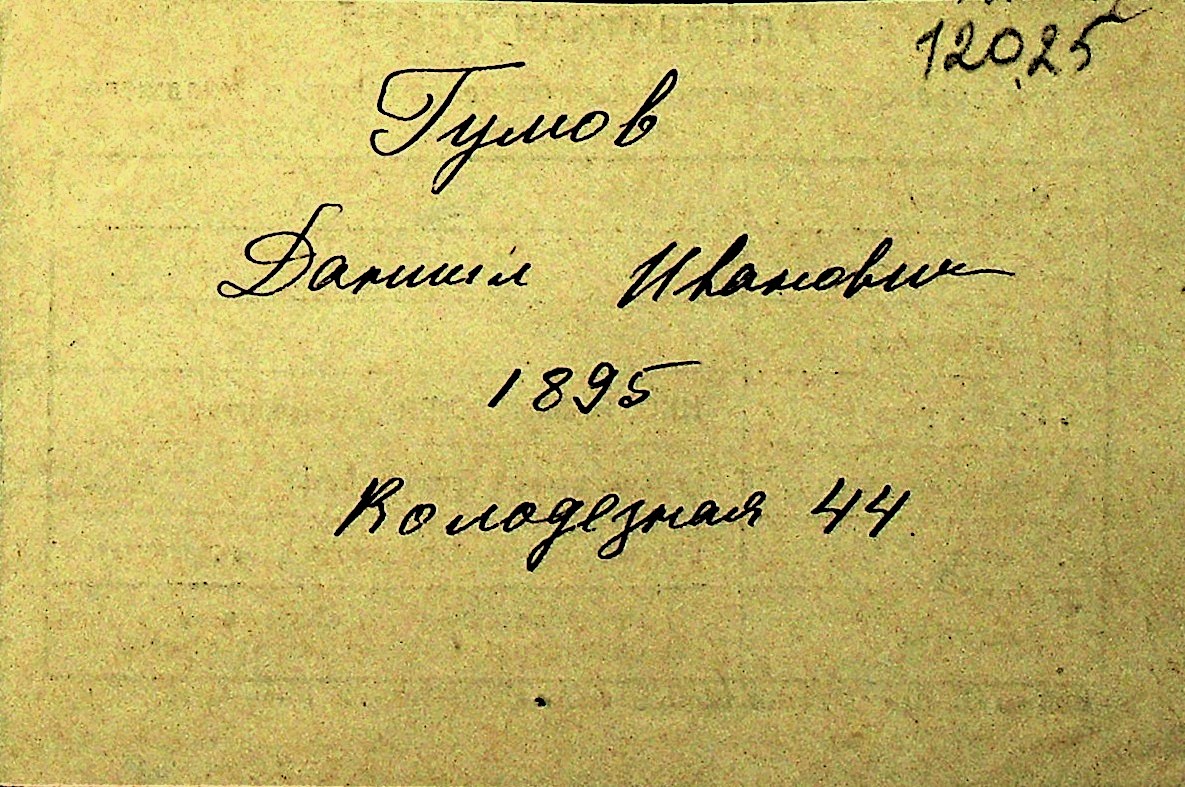 120,25
Гумов
Даниил Иванович
1895
Колодезная 44